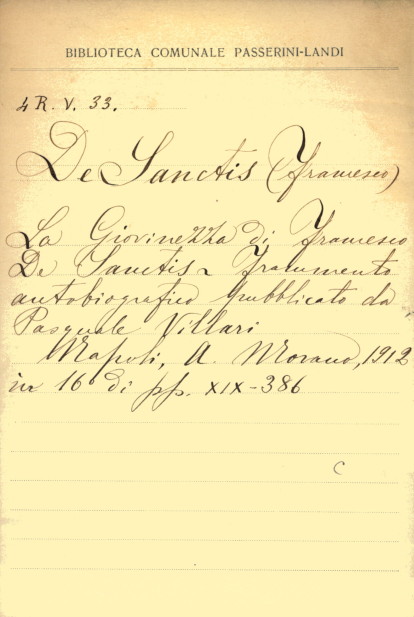 BIBLIOTECA COMUNALE PASSERINI-LANDI
4 R. V. 33.
De Sanctis (Francesco)
La Giovinezza di Francesco
De Sanctis - Frammento
autobiografico pubblicato da
Pasquale Villari
Napoli, A. Morano, 1912
in 16° di pp. XIX-386
C